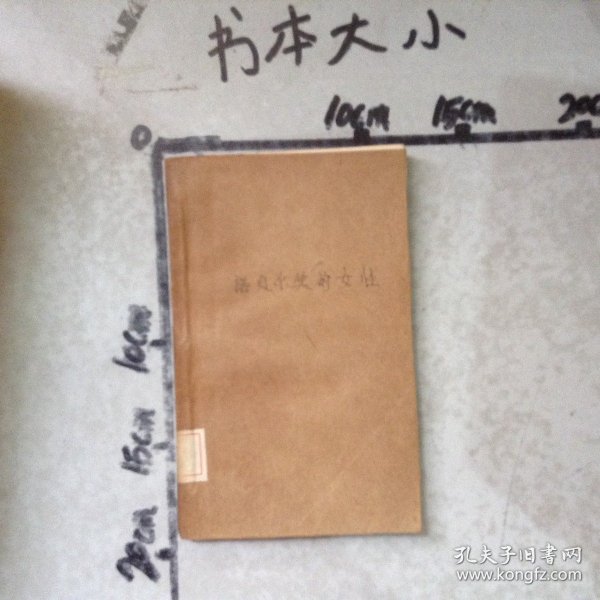 书本大小
0
10cm
15cm
20c
诺贝尔奖的女性
10cm
15cm
20cm
孔夫子旧书网
www.kongfz.com